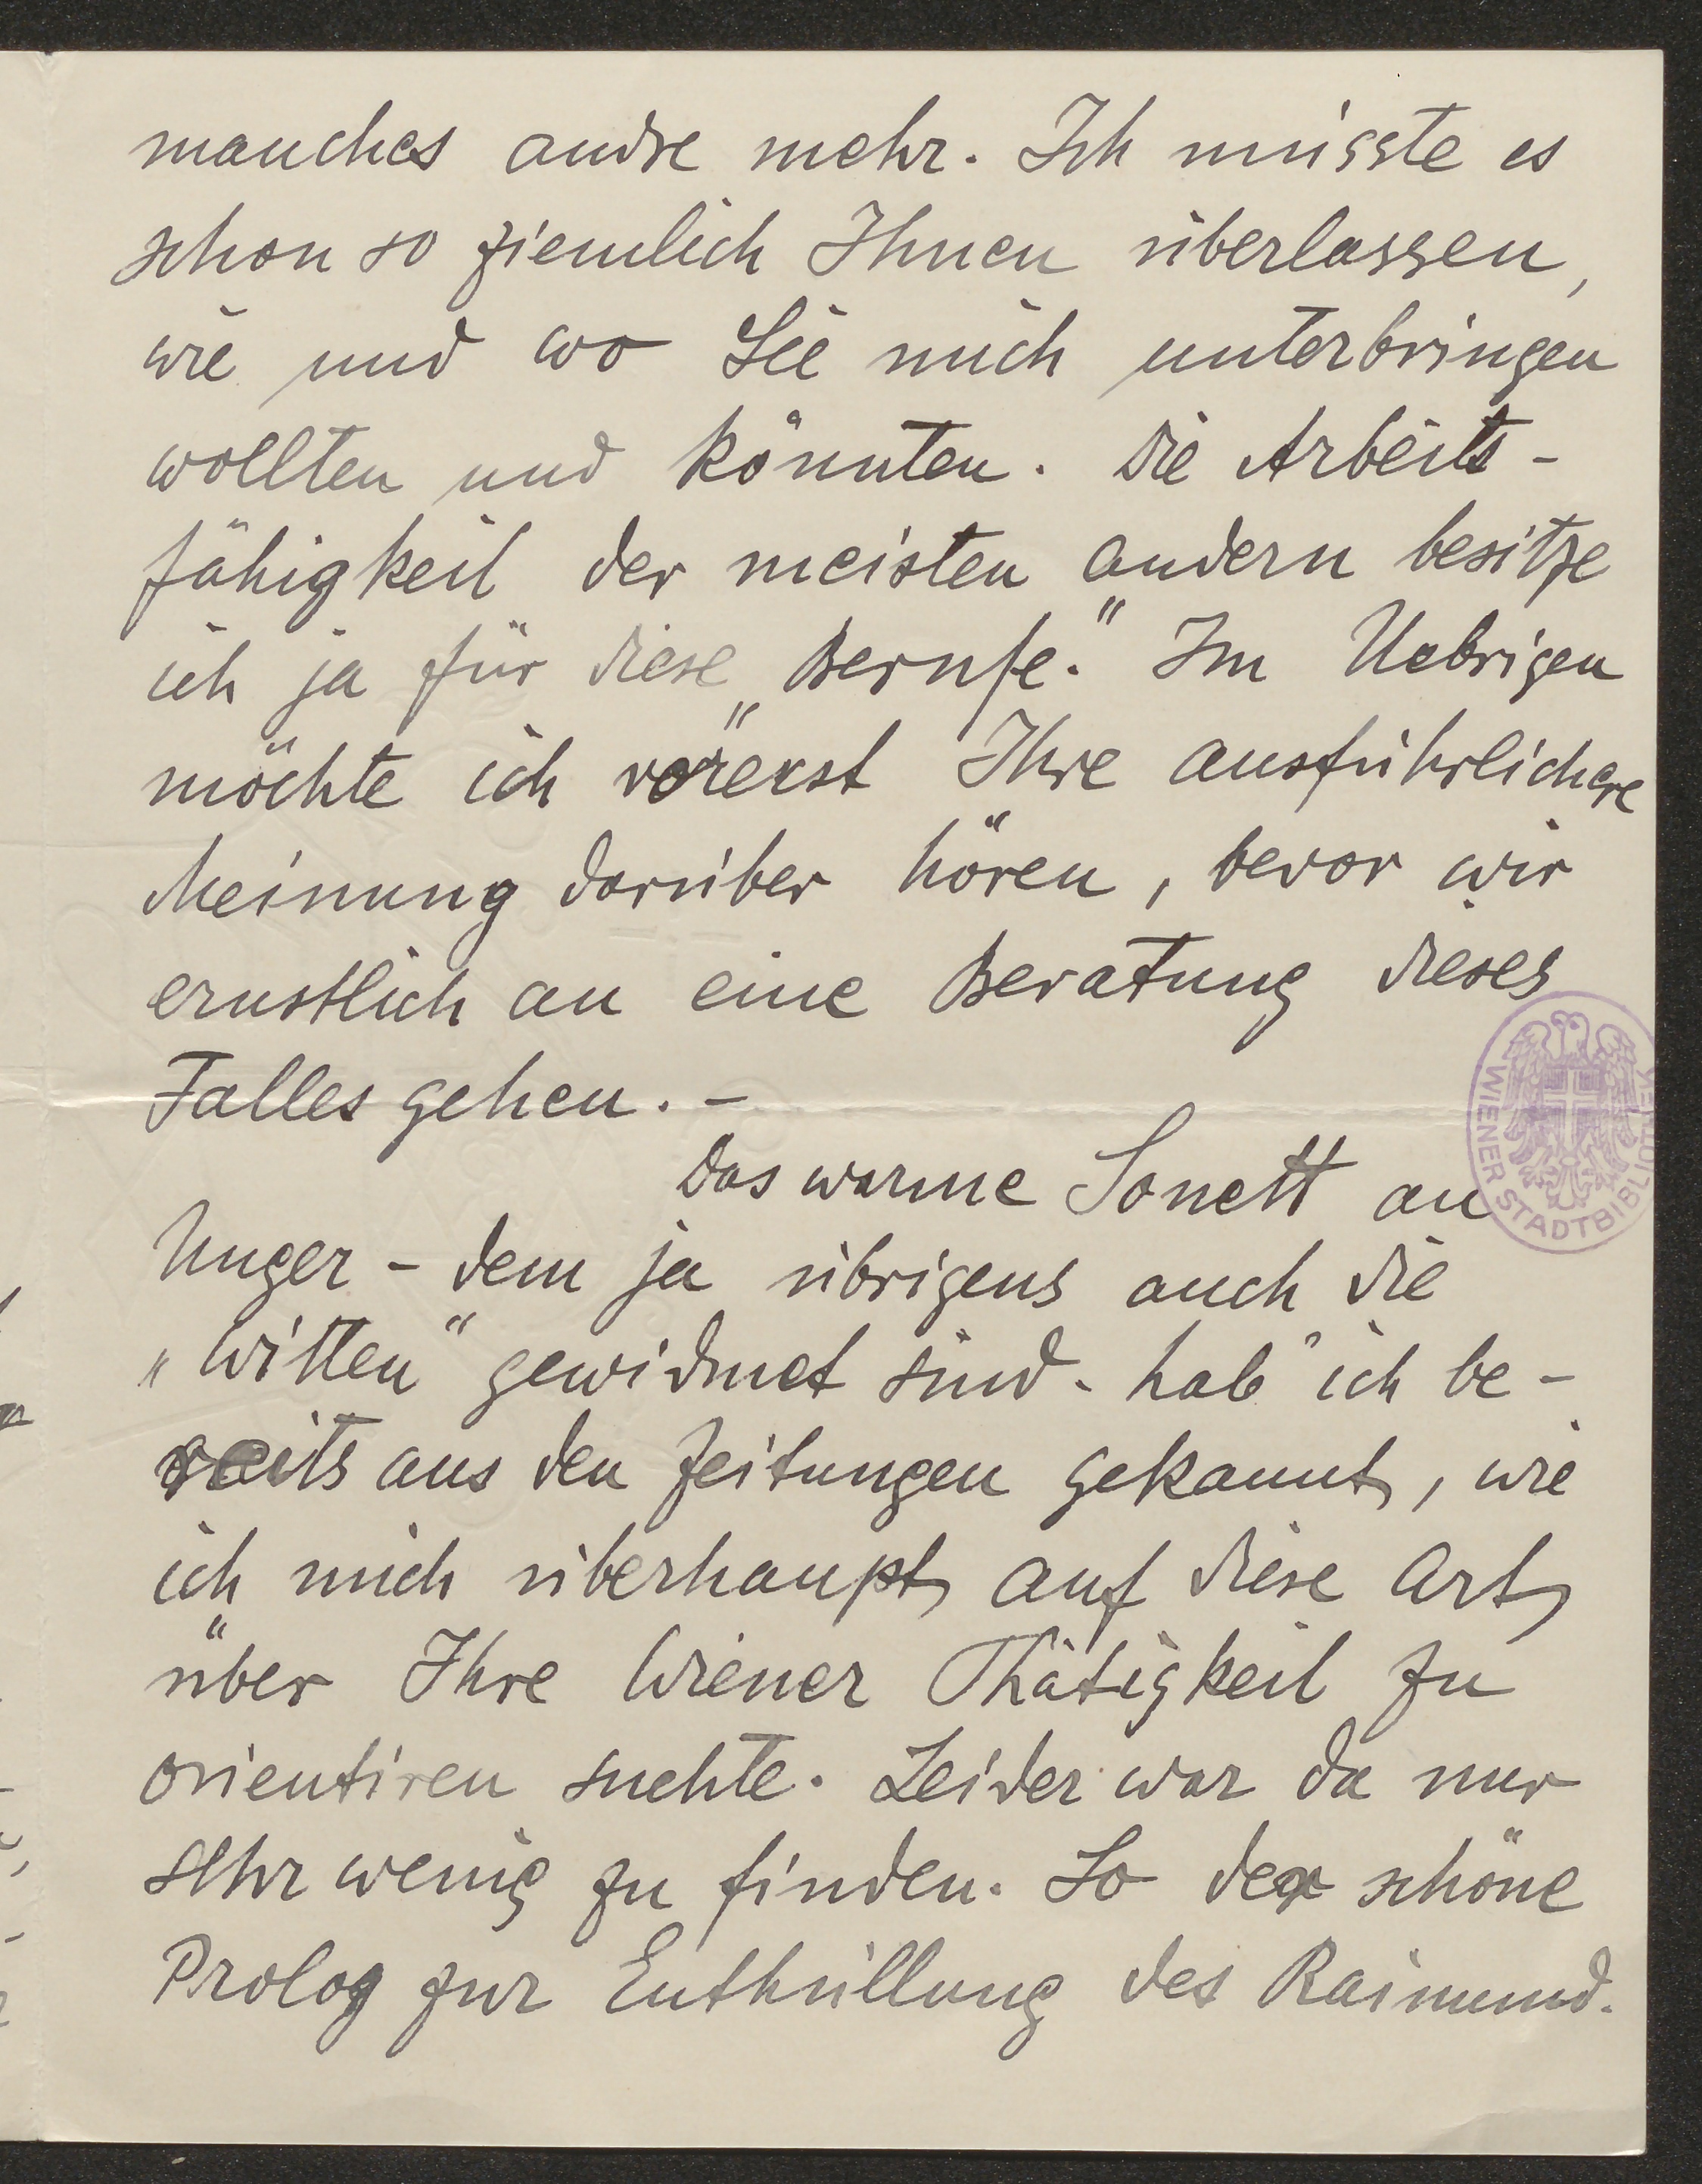 manches andre mehr. Ich müsste es
schon so ziemlich Ihnen überlassen,
wie und wo Sie mich unterbringen
wollten und könnten. Die Arbeits-
fähigkeit der meisten andern besitze
ich ja für diese „Berufe.“ Im Uebrigen
möchte ich vorerst Ihre ausführlichere
Meinung darüber hören, bevor wir
ernstlich an eine Beratung dieses
Falles gehen. –
Das warme Sonett an
Unger – dem ja übrigens auch die
„Witten“ gewidmet sind – hab' ich be-
reits aus den Zeitungen gekannt, wie
ich mich überhaupt auf diese Art
über Ihre Wiener Thätigkeit zu
orientiren suchte. Leider war da nur
sehr wenig zu finden. So der schöne
Prolog zur Enthüllung des Raimund-
WIENER STADTBIBLIOTHEK